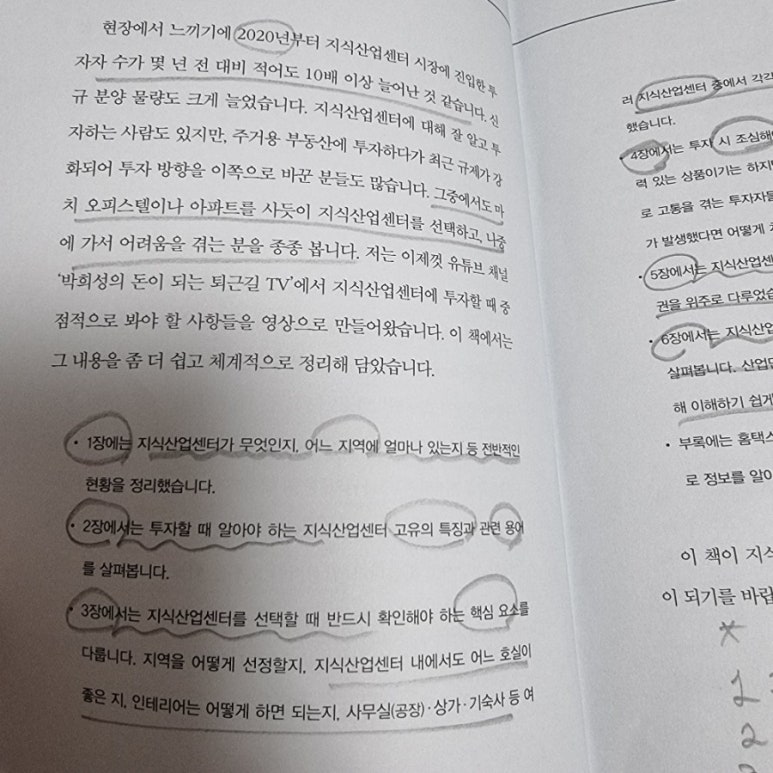 현장에서 느끼기에 2020년부터 지식산업센터 시장에 진입한 투
자자 수가 몇 년 전 대비 적어도 10배 이상 늘어난 것 같습니다. 신
규 분양 물량도 크게 늘었습니다. 지식산업센터에 대해 잘 알고 투
자하는 사람도 있지만, 주거용 부동산에 투자하다가 최근 규제가 강
화되어 투자 방향을 이쪽으로 바꾼 분들도 많습니다. 그중에서도 마
치 오피스텔이나 아파트를 사듯이 지식산업센터를 선택하고, 나중
에 가서 어려움을 겪는 분을 종종 봅니다. 저는 이제껏 유튜브 채널
'박희성의 돈이 되는 퇴근길 TV'에서 지식산업센터에 투자할 때 중
점적으로 봐야 할 사항들을 영상으로 만들어왔습니다. 이 책에서는
그 내용을 좀 더 쉽고 체계적으로 정리해 담았습니다.
• 1장에는 지식산업센터가 무엇인지, 어느 지역에 얼마나 있는지 등 전반적인
현황을 정리했습니다.
• 2장에서는 투자할 때 알아야 하는 지식산업센터 고유의 특징과 관련 용어
를 살펴봅니다.
• 3장에서는 지식산업센터를 선택할 때 반드시 확인해야 하는 핵심 요소를
다룹니다. 지역을 어떻게 선정할지, 지식산업센터 내에서도 어느 호실이
좋은 지, 인테리어는 어떻게 하면 되는지, 사무실(공장)·상가·기숙사 등 여
러 지식산업센터 중에서 각각
했습니다.
• 4장에서는 투자 시 조심해
력 있는 상품이기는 하지
로 고통을 겪는 투자자들
가 발생했다면 어떻게
• 5장에서는 지식산업센
권을 위주로 다루었습
• 6장에서는 지식산업
살펴봅니다. 산업
해 이해하기 쉽게
• 부록에는 홈택스
로 정보를 알아
이 책이 지식
이 되기를 바랍
*
1
2